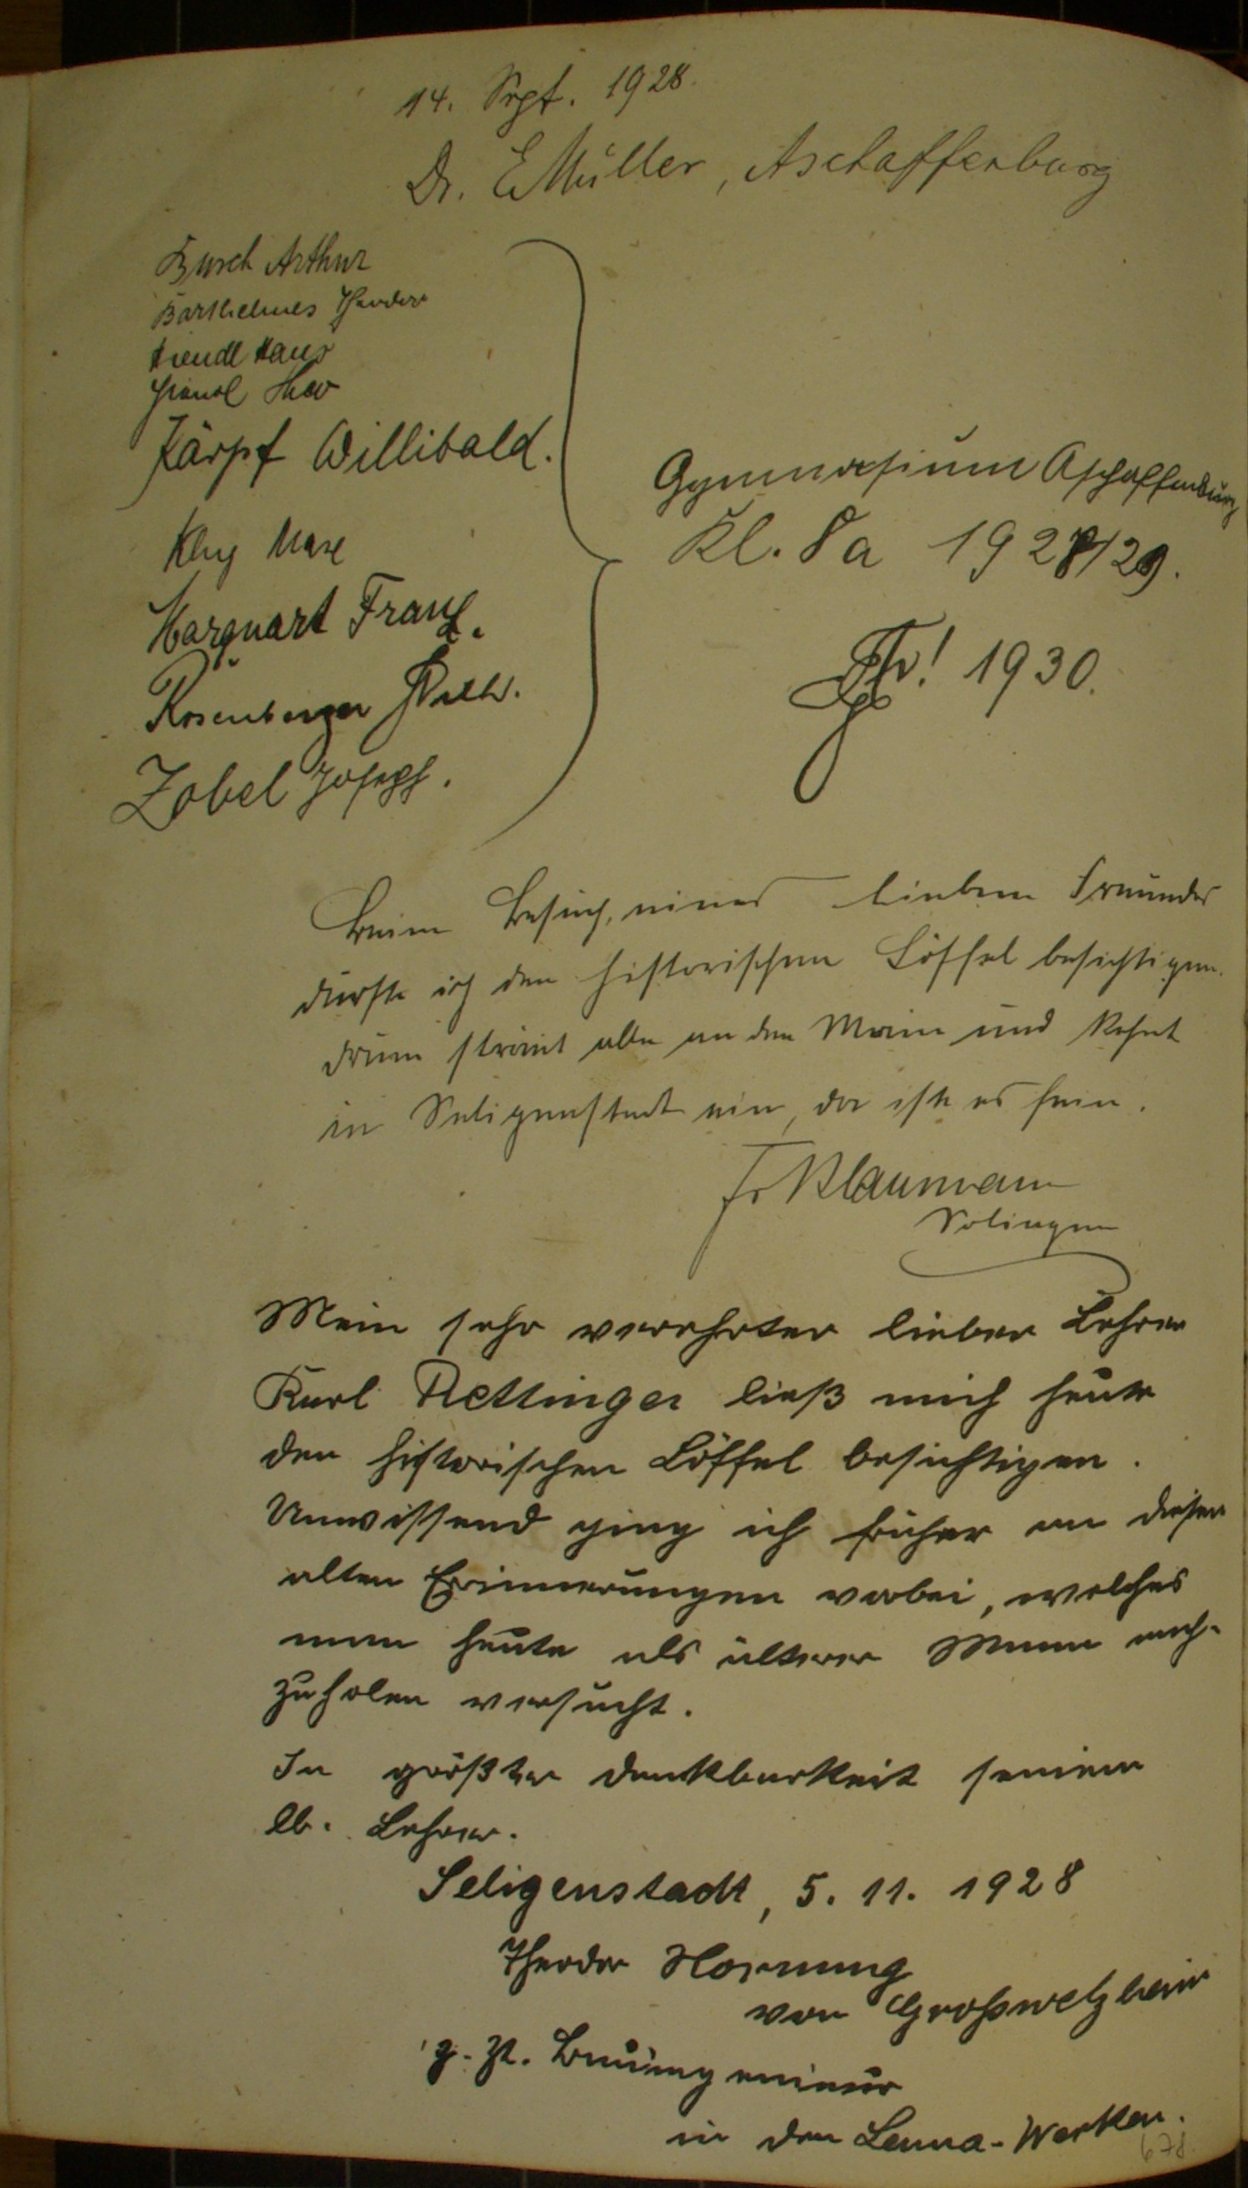 14. Sept. 1928.
Dr. E Müller, Aschaffenburg
Busch Arthur
Barthelmes Theodor
Hans
Kärpf Willibald.
Klug Max
Marquart Franz.
Rosenberger Wilh.
Zobel Joseph.
Gymnasium Aschaffenburg
Kl. 8a 1928/29.
1930.
Beim Besuch, eines lieben Freundes
durfte ich den historischen Löffel besichtigen.
drum strömt alle an den Main und kehrt
in Seligenstadt ein, da ist es fein.
Fr Klaumann
Solingen
Mein sehr verehrter lieber Lehrer
Karl Rettinger ließ mich heute
den historischen Löffel besichtigen.
Unwissend ging ich früher an diesen
alten Erinnerungen vorbei, welches
man heute als älterer Mann nach-
zuholen versucht.
In größter Dankbarkeit seinem
lb. Lehrer.
Seligenstadt, 5. 11. 1928
Theodor Hornung
von Großwelzheim
z. Zt. Bauingenieur
in den Leuna-Werken.
67d